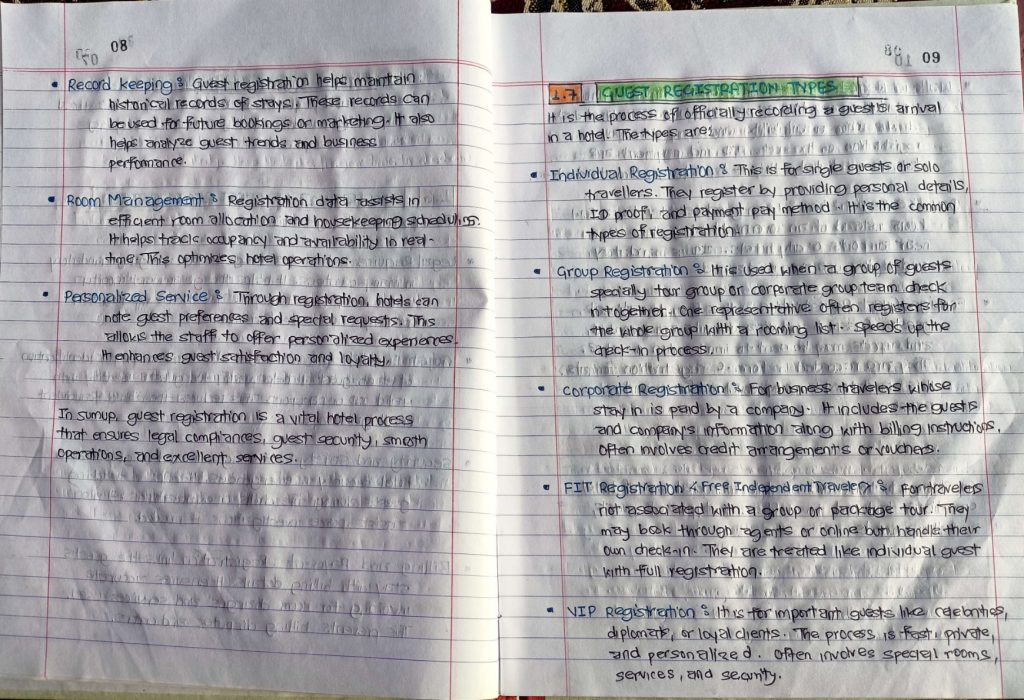 08
• Record keeping : Guest registration helps maintain
historical records of stays. These records can
be used for future bookings or marketing. It also
helps analyze guest trends and business
performance.
• Room Management : Registration data assists in
efficient room allocation and housekeeping scheduling.
It helps track occupancy and availability in real-
time. This optimizes hotel operations.
• Personalized Service : Through registration, hotels can
note guest preferences and special requests. This
allows the staff to offer personalized experiences.
It enhances guest satisfaction and loyalty.
In sumup, guest registration is a vital hotel process
that ensures legal compliances, guest security, smooth
operations, and excellent services.
09
1.7 GUEST REGISTRATION TYPES
It is the process of officially recording a guest's arrival
in a hotel. The types are:
• Individual Registration : This is for single guests or solo
travellers. They register by providing personal details,
ID proof, and payment pay method. It is the common
types of registration.
• Group Registration : It is used when a group of guests
specially tour group or corporate group team check
in together. One representative often registers for
the whole group with a rooming list. speeds up the
check-in process.
• Corporate Registration : For business travelers whose
stay in is paid by a company. It includes the guest's
and company's information along with billing instructions.
Often involves credit arrangements or vouchers.
• FIT Registration (Free Independent Traveler) : For travelers
not associated with a group or package tour. They
may book through agents or online but handle their
own check-in. They are treated like individual guest
with full registration.
• VIP Registration : It is for important guests like celebrities,
diplomats, or loyal clients. The process is fast, private,
and personalized. Often involves special rooms,
services, and security.